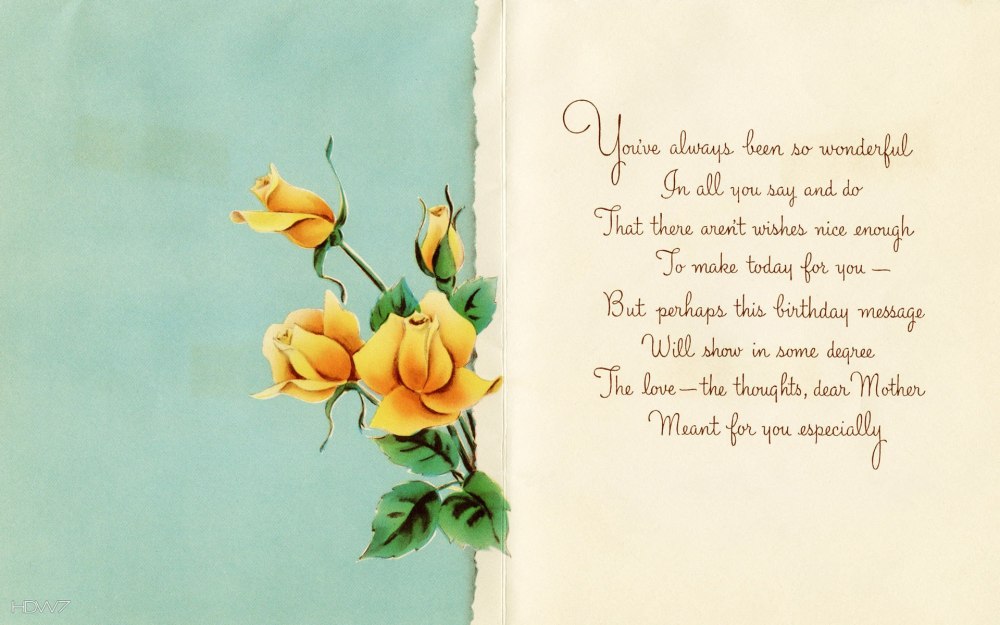 You've always been so wonderful
In all you say and do
That there aren't wishes nice enough
To make today for you —
But perhaps this birthday message
Will show in some degree
The love — the thoughts, dear Mother
Meant for you especially
HDW7